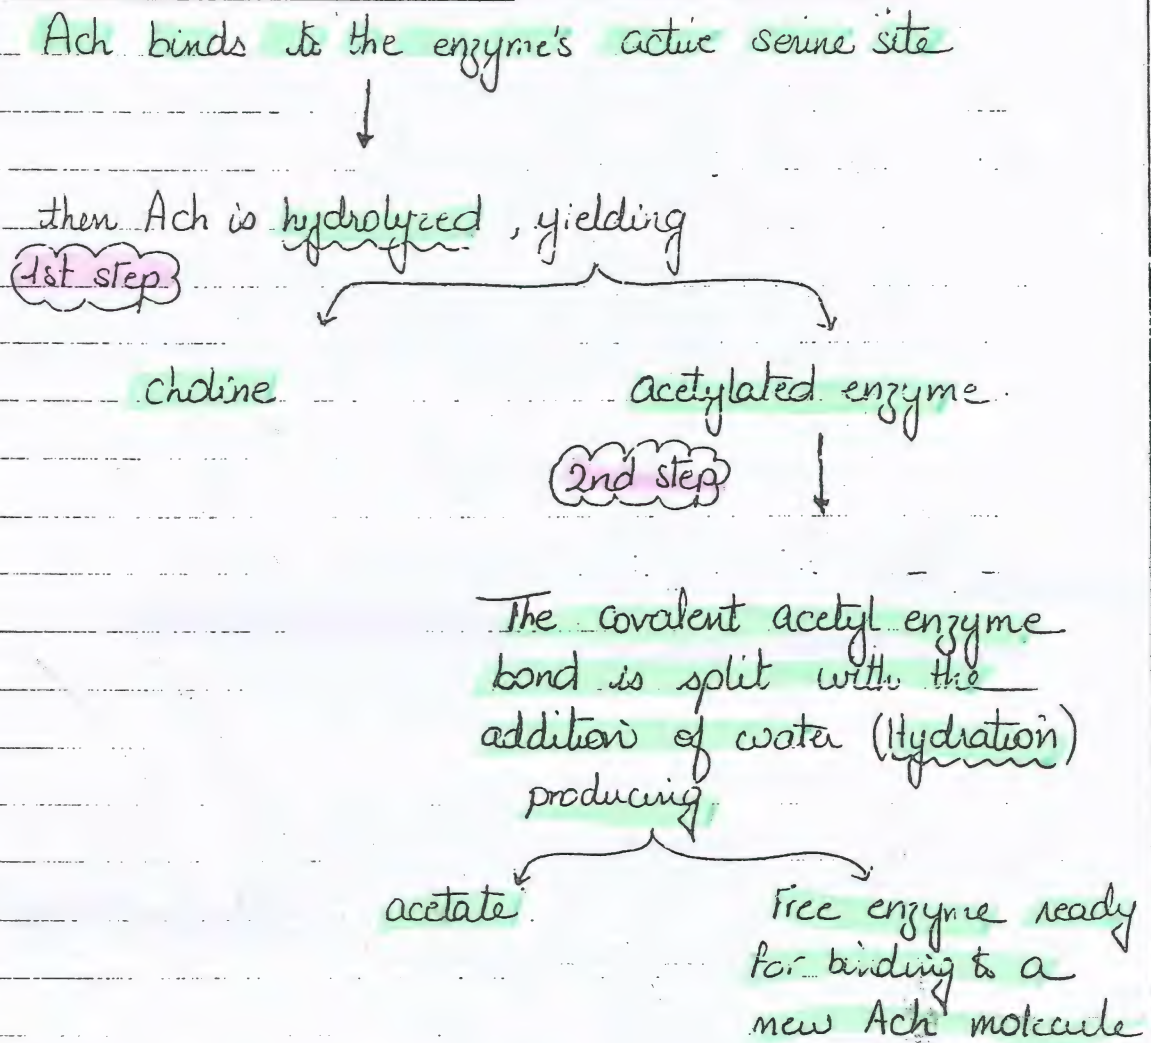 Ach binds to the enzyme's active serine site
then Ach is hydrolyzed, yielding
1st step
choline
acetylated enzyme
2nd step
The covalent acetyl enzyme
bond is split with the
addition of water (Hydration)
producing
acetate
Free enzyme ready
for binding to a
new Ach molecule